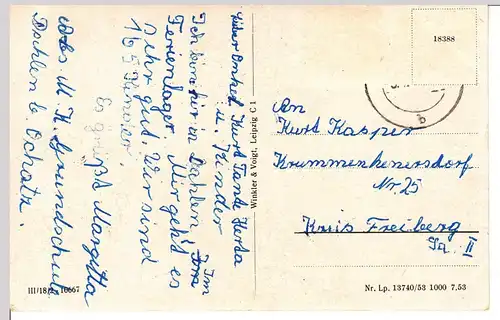 Lieber Onkel Kurt Tante Herta
u. Kinder
Ich bin hir in Dahlen, Im
Ferienlager. Mir geht es
sehr gut. Wir sind
165 Kinder.
Es grüßt Margitta
Abs M. K. Grundschule
Dahlen b Oschatz.
Winkler & Voigt, Leipzig C 1
18388
An
Kurt Kasper
Krummenhenersdorf
Nr. 25
Kreis Freiberg
Sa. II
III/18/2 16667
Nr. Lp. 13740/53 1000 7,53